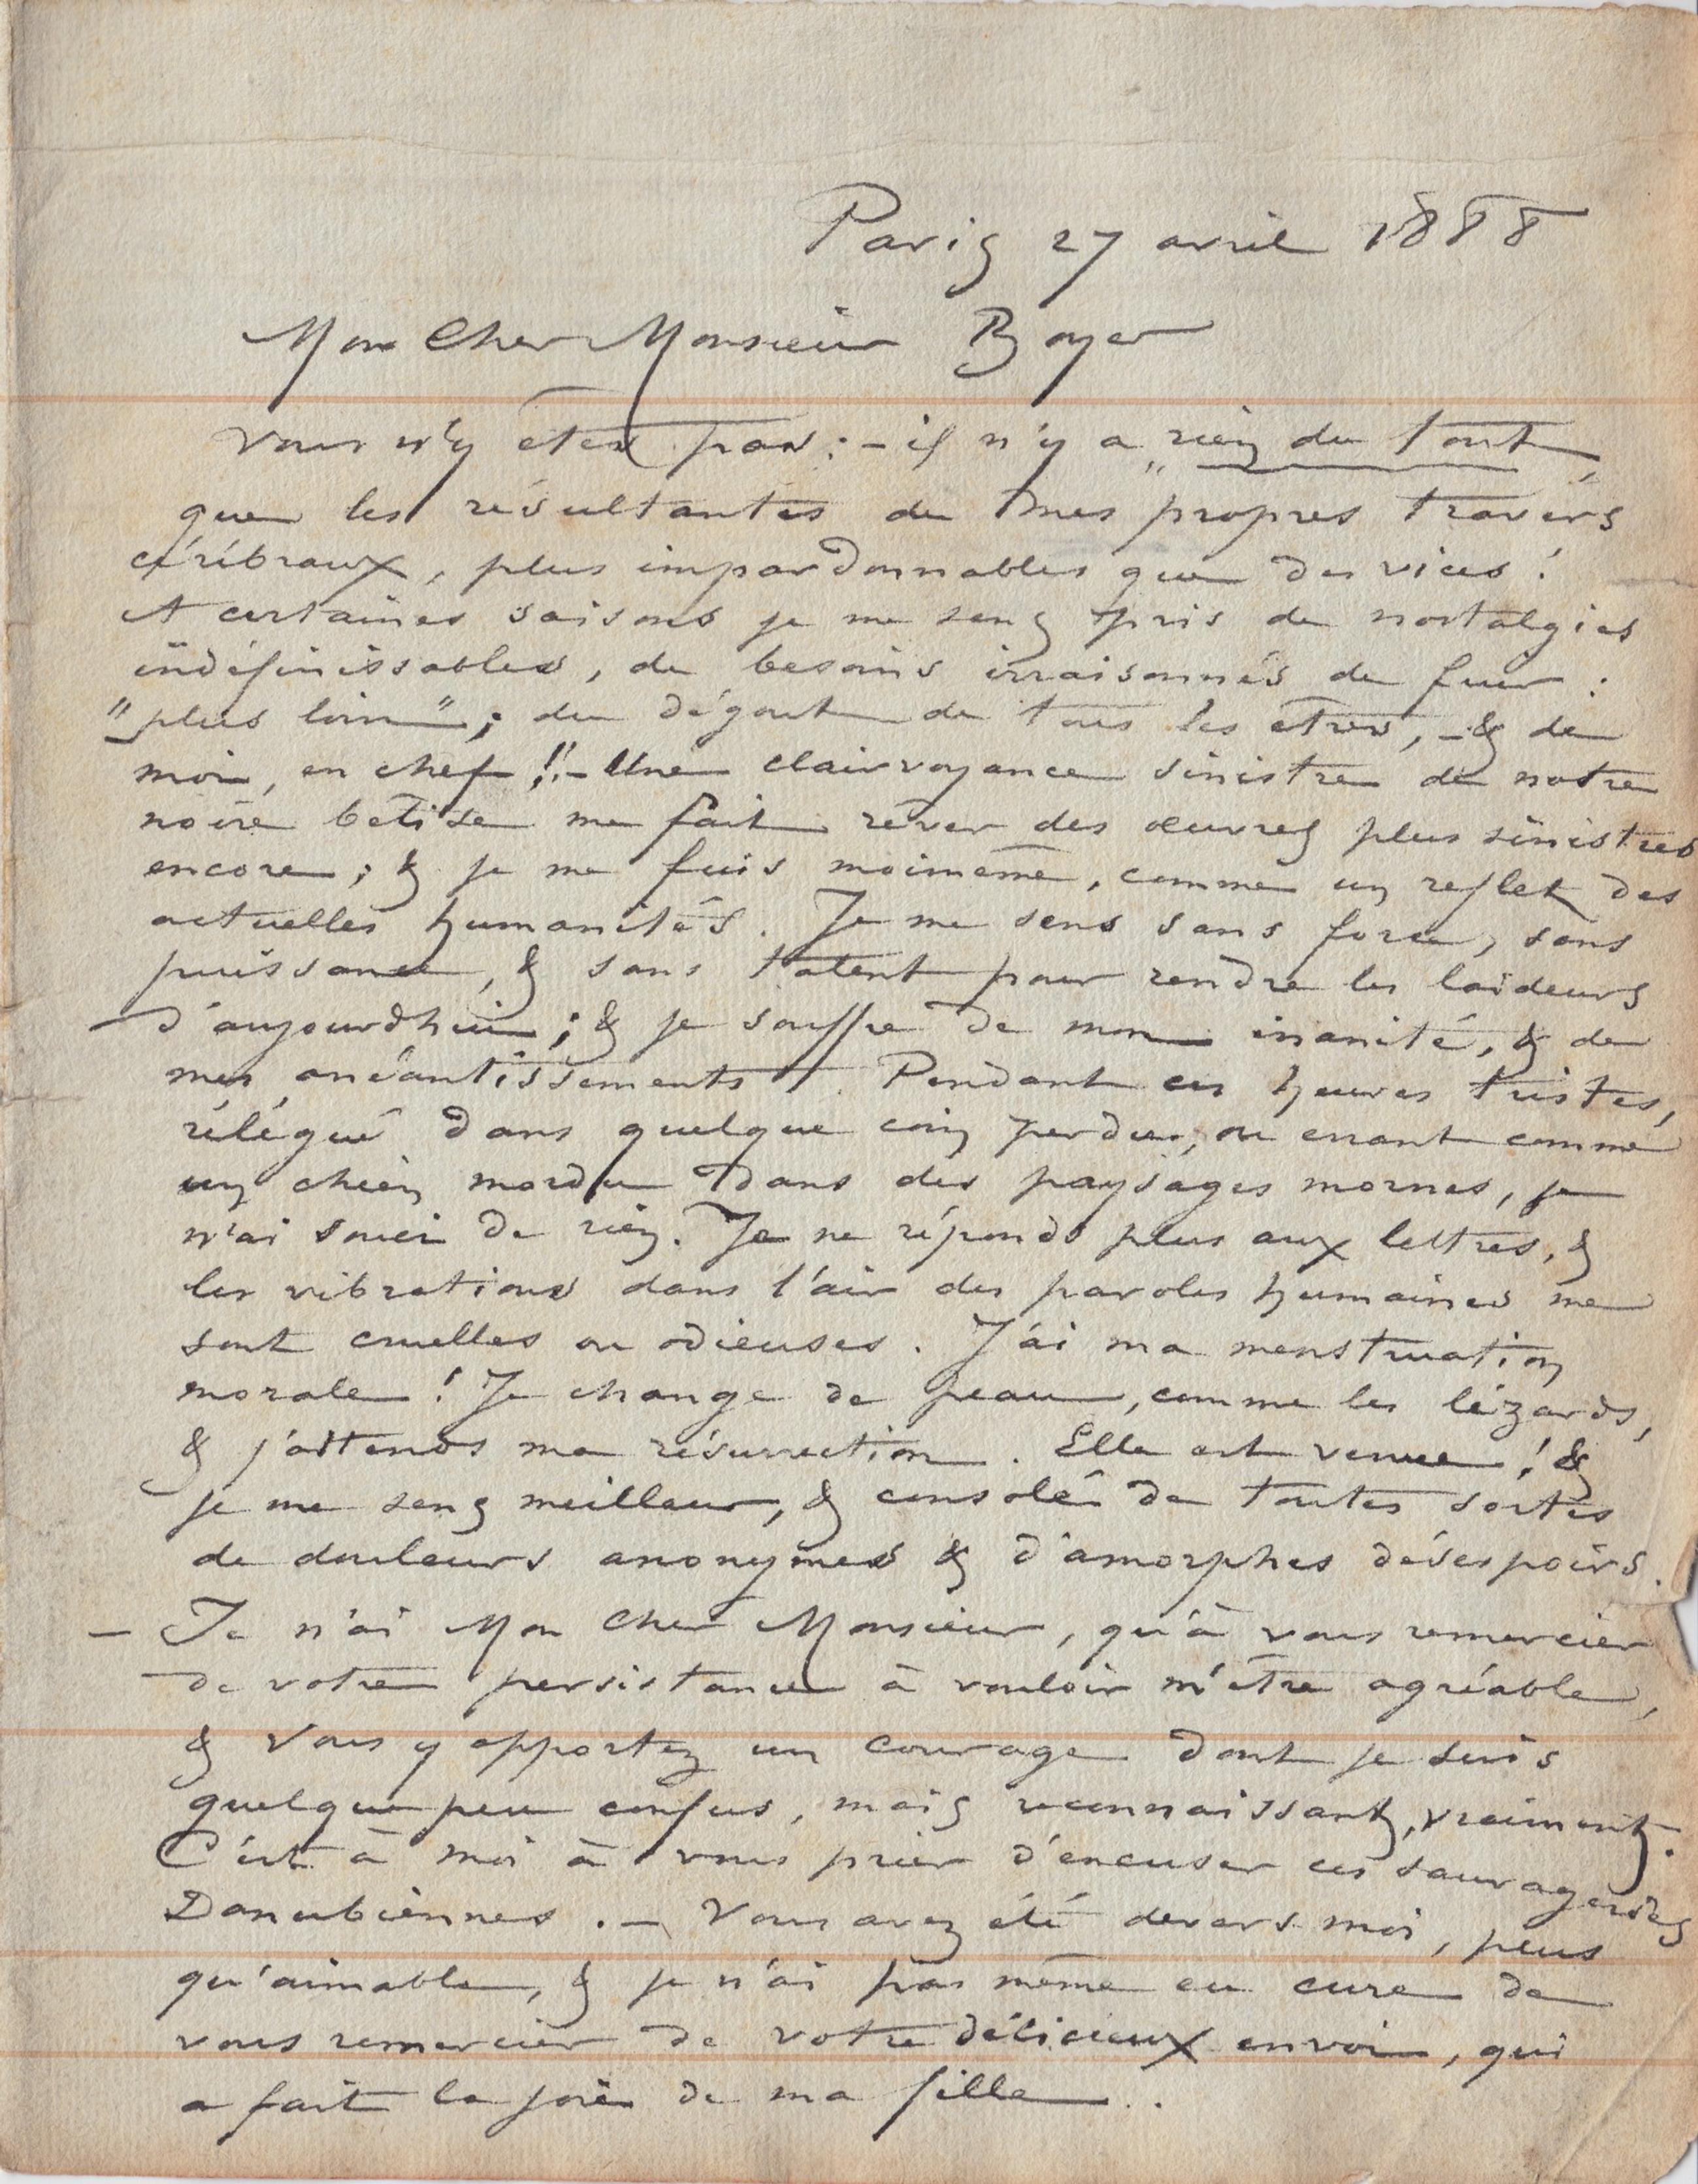 Paris 27 avril 1888
Mon Cher Monsieur Boyer
Vous n'y êtes pas : – il n'y a „ rien du tout „
que les résultantes de mes propres travers
cérébraux, plus impardonnables que des vices !
A certaines saisons je me sens pris de nostalgies
indéfinissables, de besoins irraisonnés de fuir :
"plus loin" ; du dégout de tous les êtres, – & de
moi, en chef !! – Une clairvoyance sinistre de notre
noire bêtise me fait rêver des œuvres plus sinistres
encore ; & je me fuis moimême, comme un reflet des
actuelles humanités. Je me sens sans force, sans
puissance, & sans talent pour rendre les laideurs
d'aujourdhui ; & je souffre de mon inanité, & de
mes anéantissements. Pendant ces heures tristes,
rélégué dans quelque coin perdu, ou errant comme
un chien mordu dans des paysages mornes, je
n'ai souci de rien. Je ne réponds plus aux lettres, &
les vibrations dans l'air des paroles humaines me
sont cruelles ou odieuses. J'ai ma menstruation
morale ! Je change de peau, comme les lézards,
& j'attends ma résurrection. Elle est venue ! &
je me sens meilleur, & consolé de toutes sortes
de douleurs anonymes & d'amorphes désespoirs.
– Je n'ai Mon Cher Monsieur, qu'à vous remercier
de votre persistance à vouloir m'être agréable,
& vous y apportez un courage dont je suis
quelque peu confus, mais reconnaissant, vraiment.
C'est à moi à vous prier d'excuser ces sauvageries
Danubiennes. – Vous avez été devers moi, plus
qu'aimable, & je n'ai pas même eu cure de
vous remercier de votre délicieux envoi, qui
a fait la joie de ma fille ..